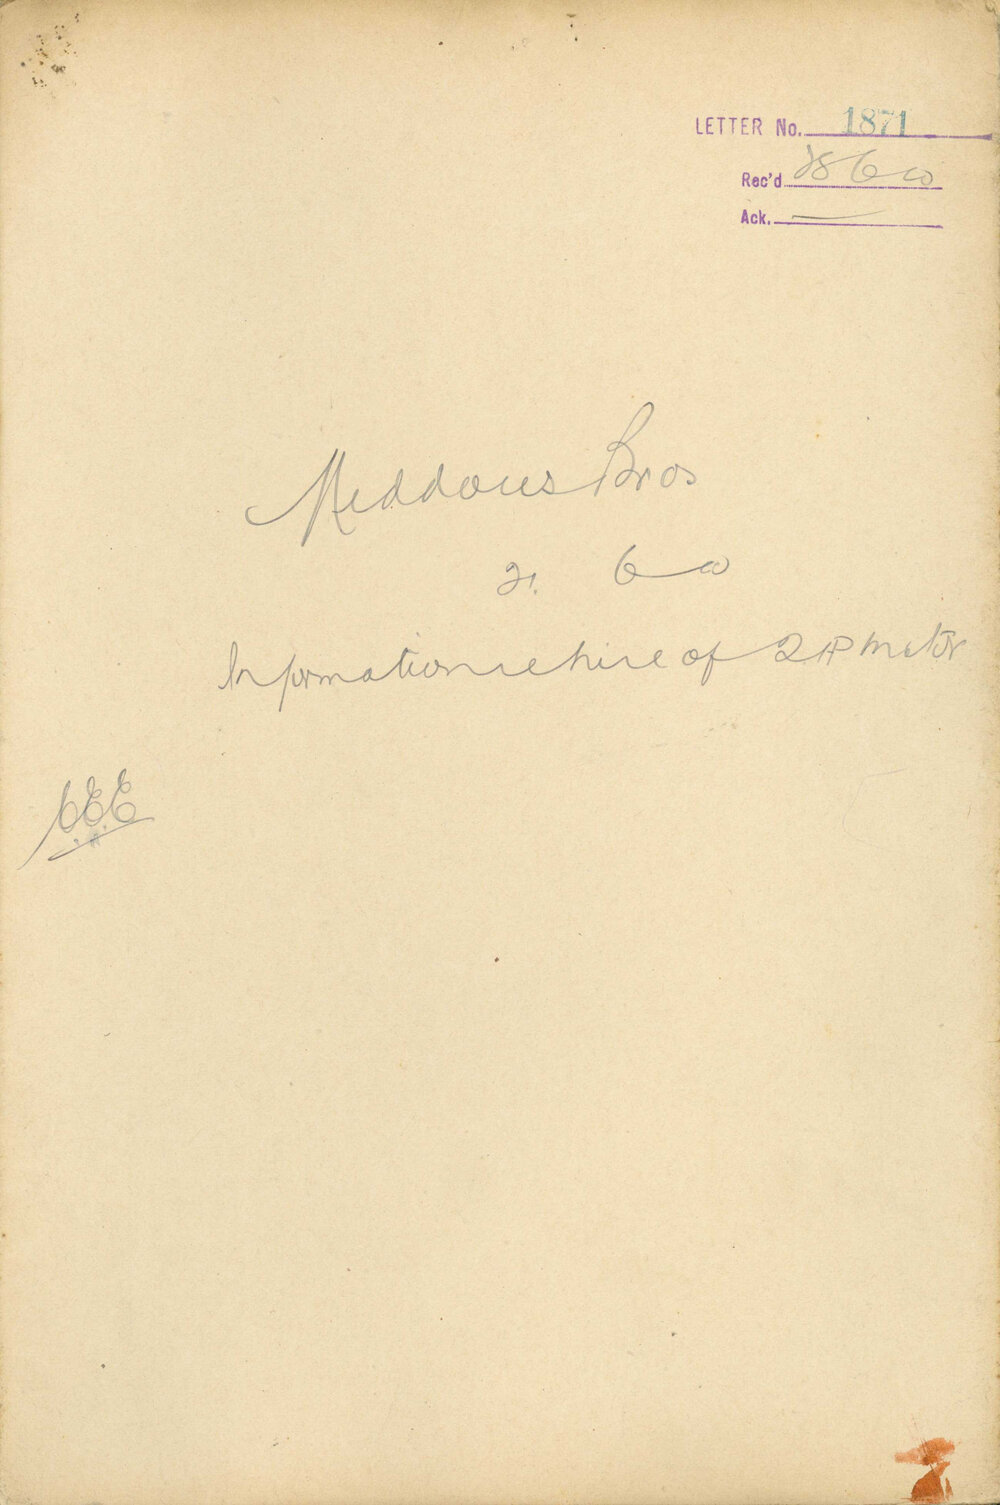 LETTER No. 1871
Rec'd 28 6 10
Ack. —
Meddows Bros
21. 6 10
Information re hire of 2 HP Motor
C.E.E